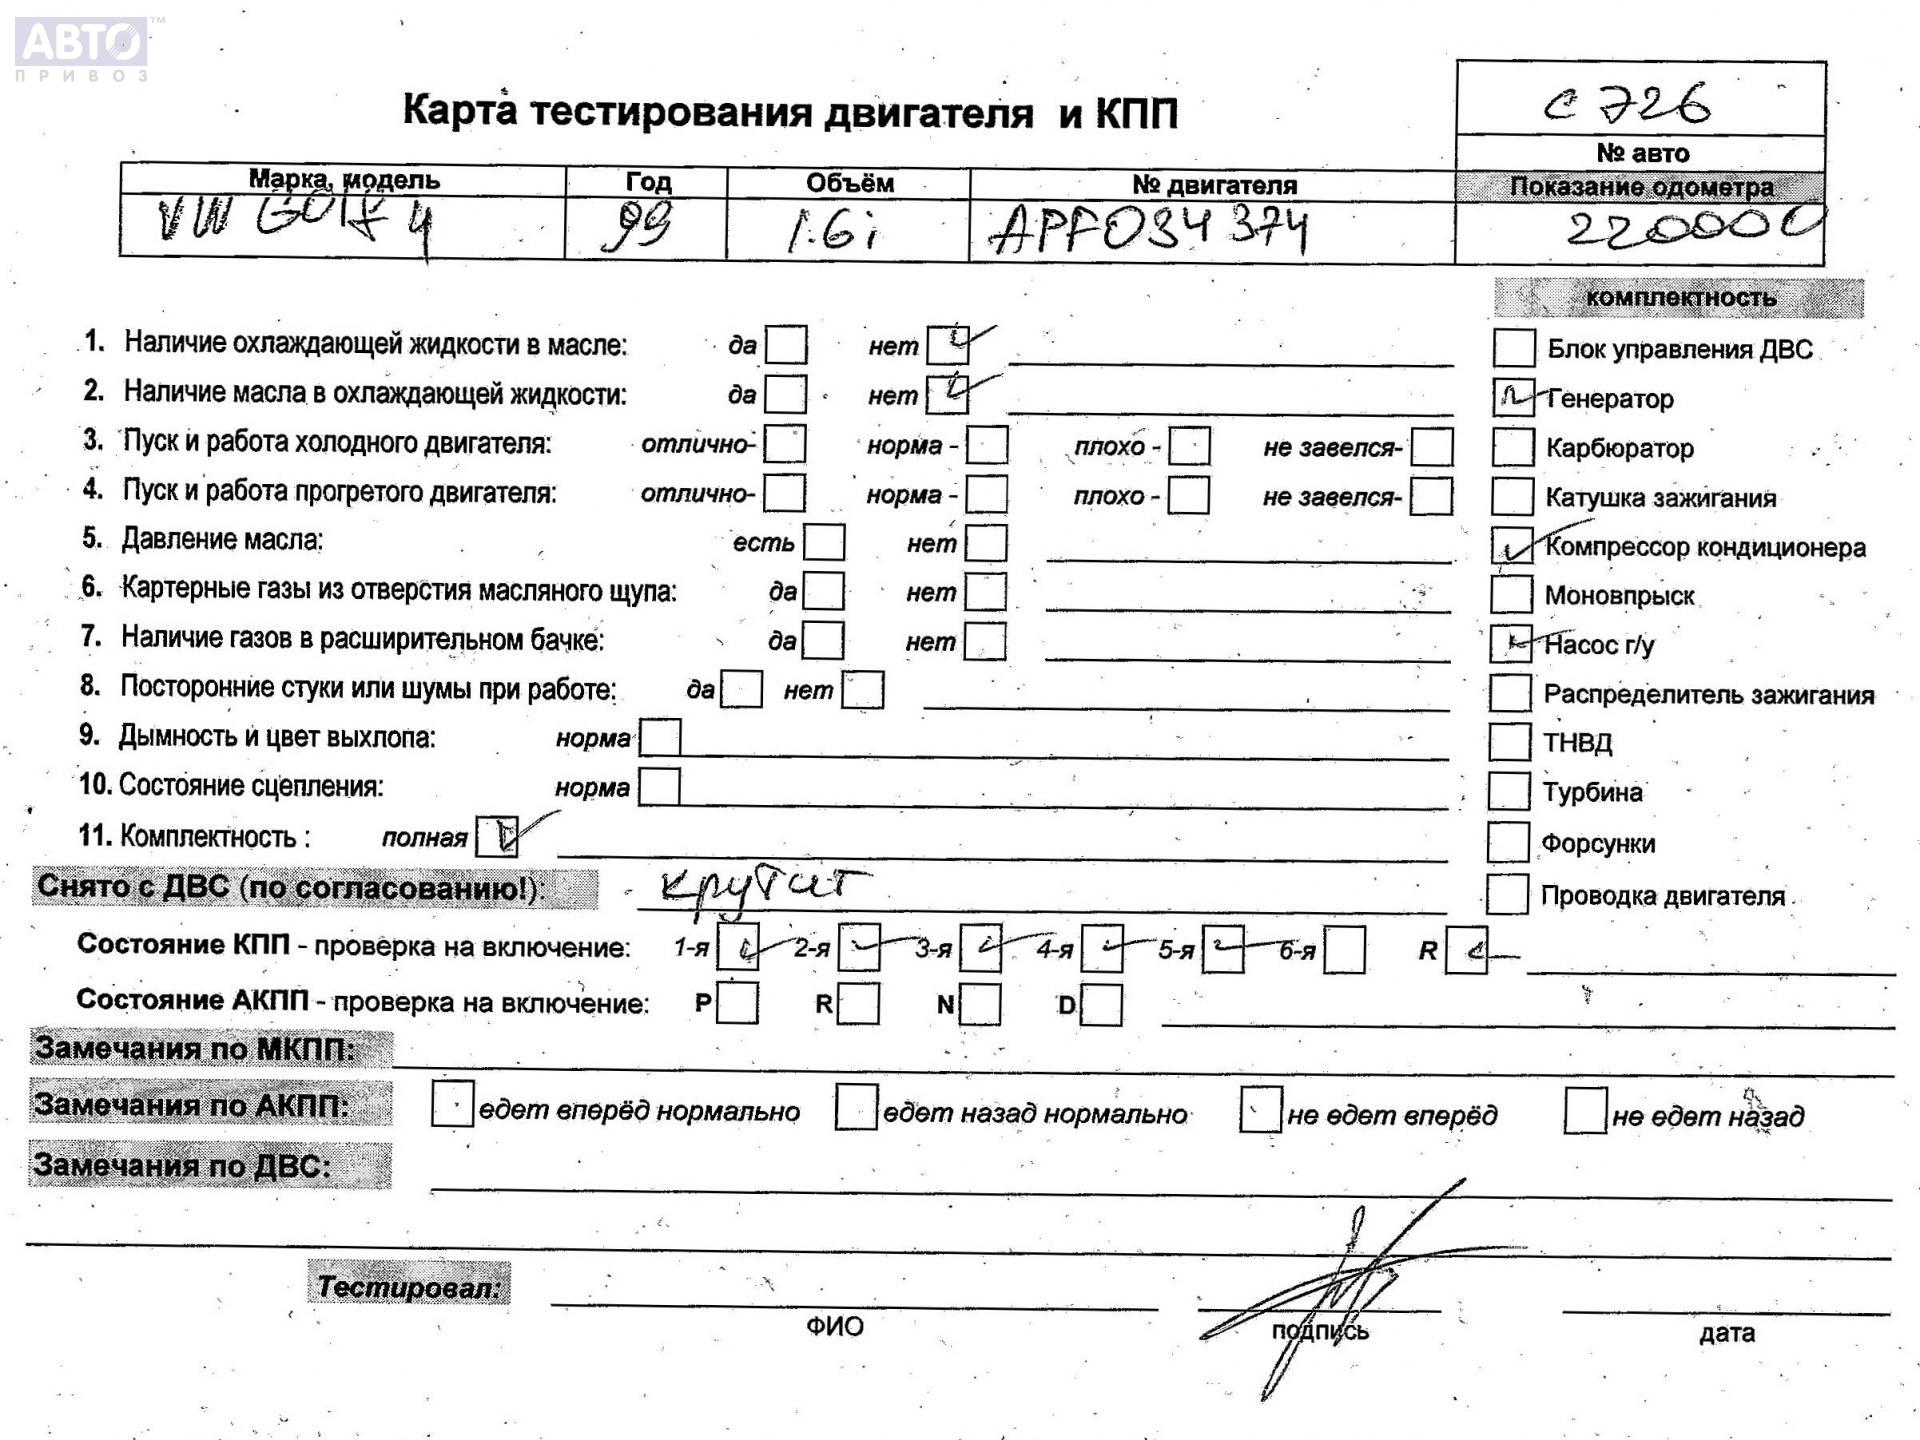 АВТО™
ПРИВОЗ
Карта тестирования двигателя и КПП
С 726
№ авто
Марка, модель Год Объём № двигателя Показание одометра
VW GOLF 4 99 1.6i APF034374 220000
комплектность
1. Наличие охлаждающей жидкости в масле: да нет Блок управления ДВС
2. Наличие масла в охлаждающей жидкости: да нет Генератор
3. Пуск и работа холодного двигателя: отлично- норма - плохо - не завелся- Карбюратор
4. Пуск и работа прогретого двигателя: отлично- норма - плохо - не завелся- Катушка зажигания
5. Давление масла: есть нет Компрессор кондиционера
6. Картерные газы из отверстия масляного щупа: да нет Моновпрыск
7. Наличие газов в расширительном бачке: да нет Насос г/у
8. Посторонние стуки или шумы при работе: да нет Распределитель зажигания
9. Дымность и цвет выхлопа: норма ТНВД
10. Состояние сцепления: норма Турбина
11. Комплектность : полная Форсунки
Снято с ДВС (по согласованию!): крутит Проводка двигателя
Состояние КПП - проверка на включение: 1-я 2-я 3-я 4-я 5-я 6-я R
Состояние АКПП - проверка на включение: P R N D
Замечания по МКПП:
Замечания по АКПП: едет вперёд нормально едет назад нормально не едет вперёд не едет назад
Замечания по ДВС:
Тестировал:
ФИО подпись дата